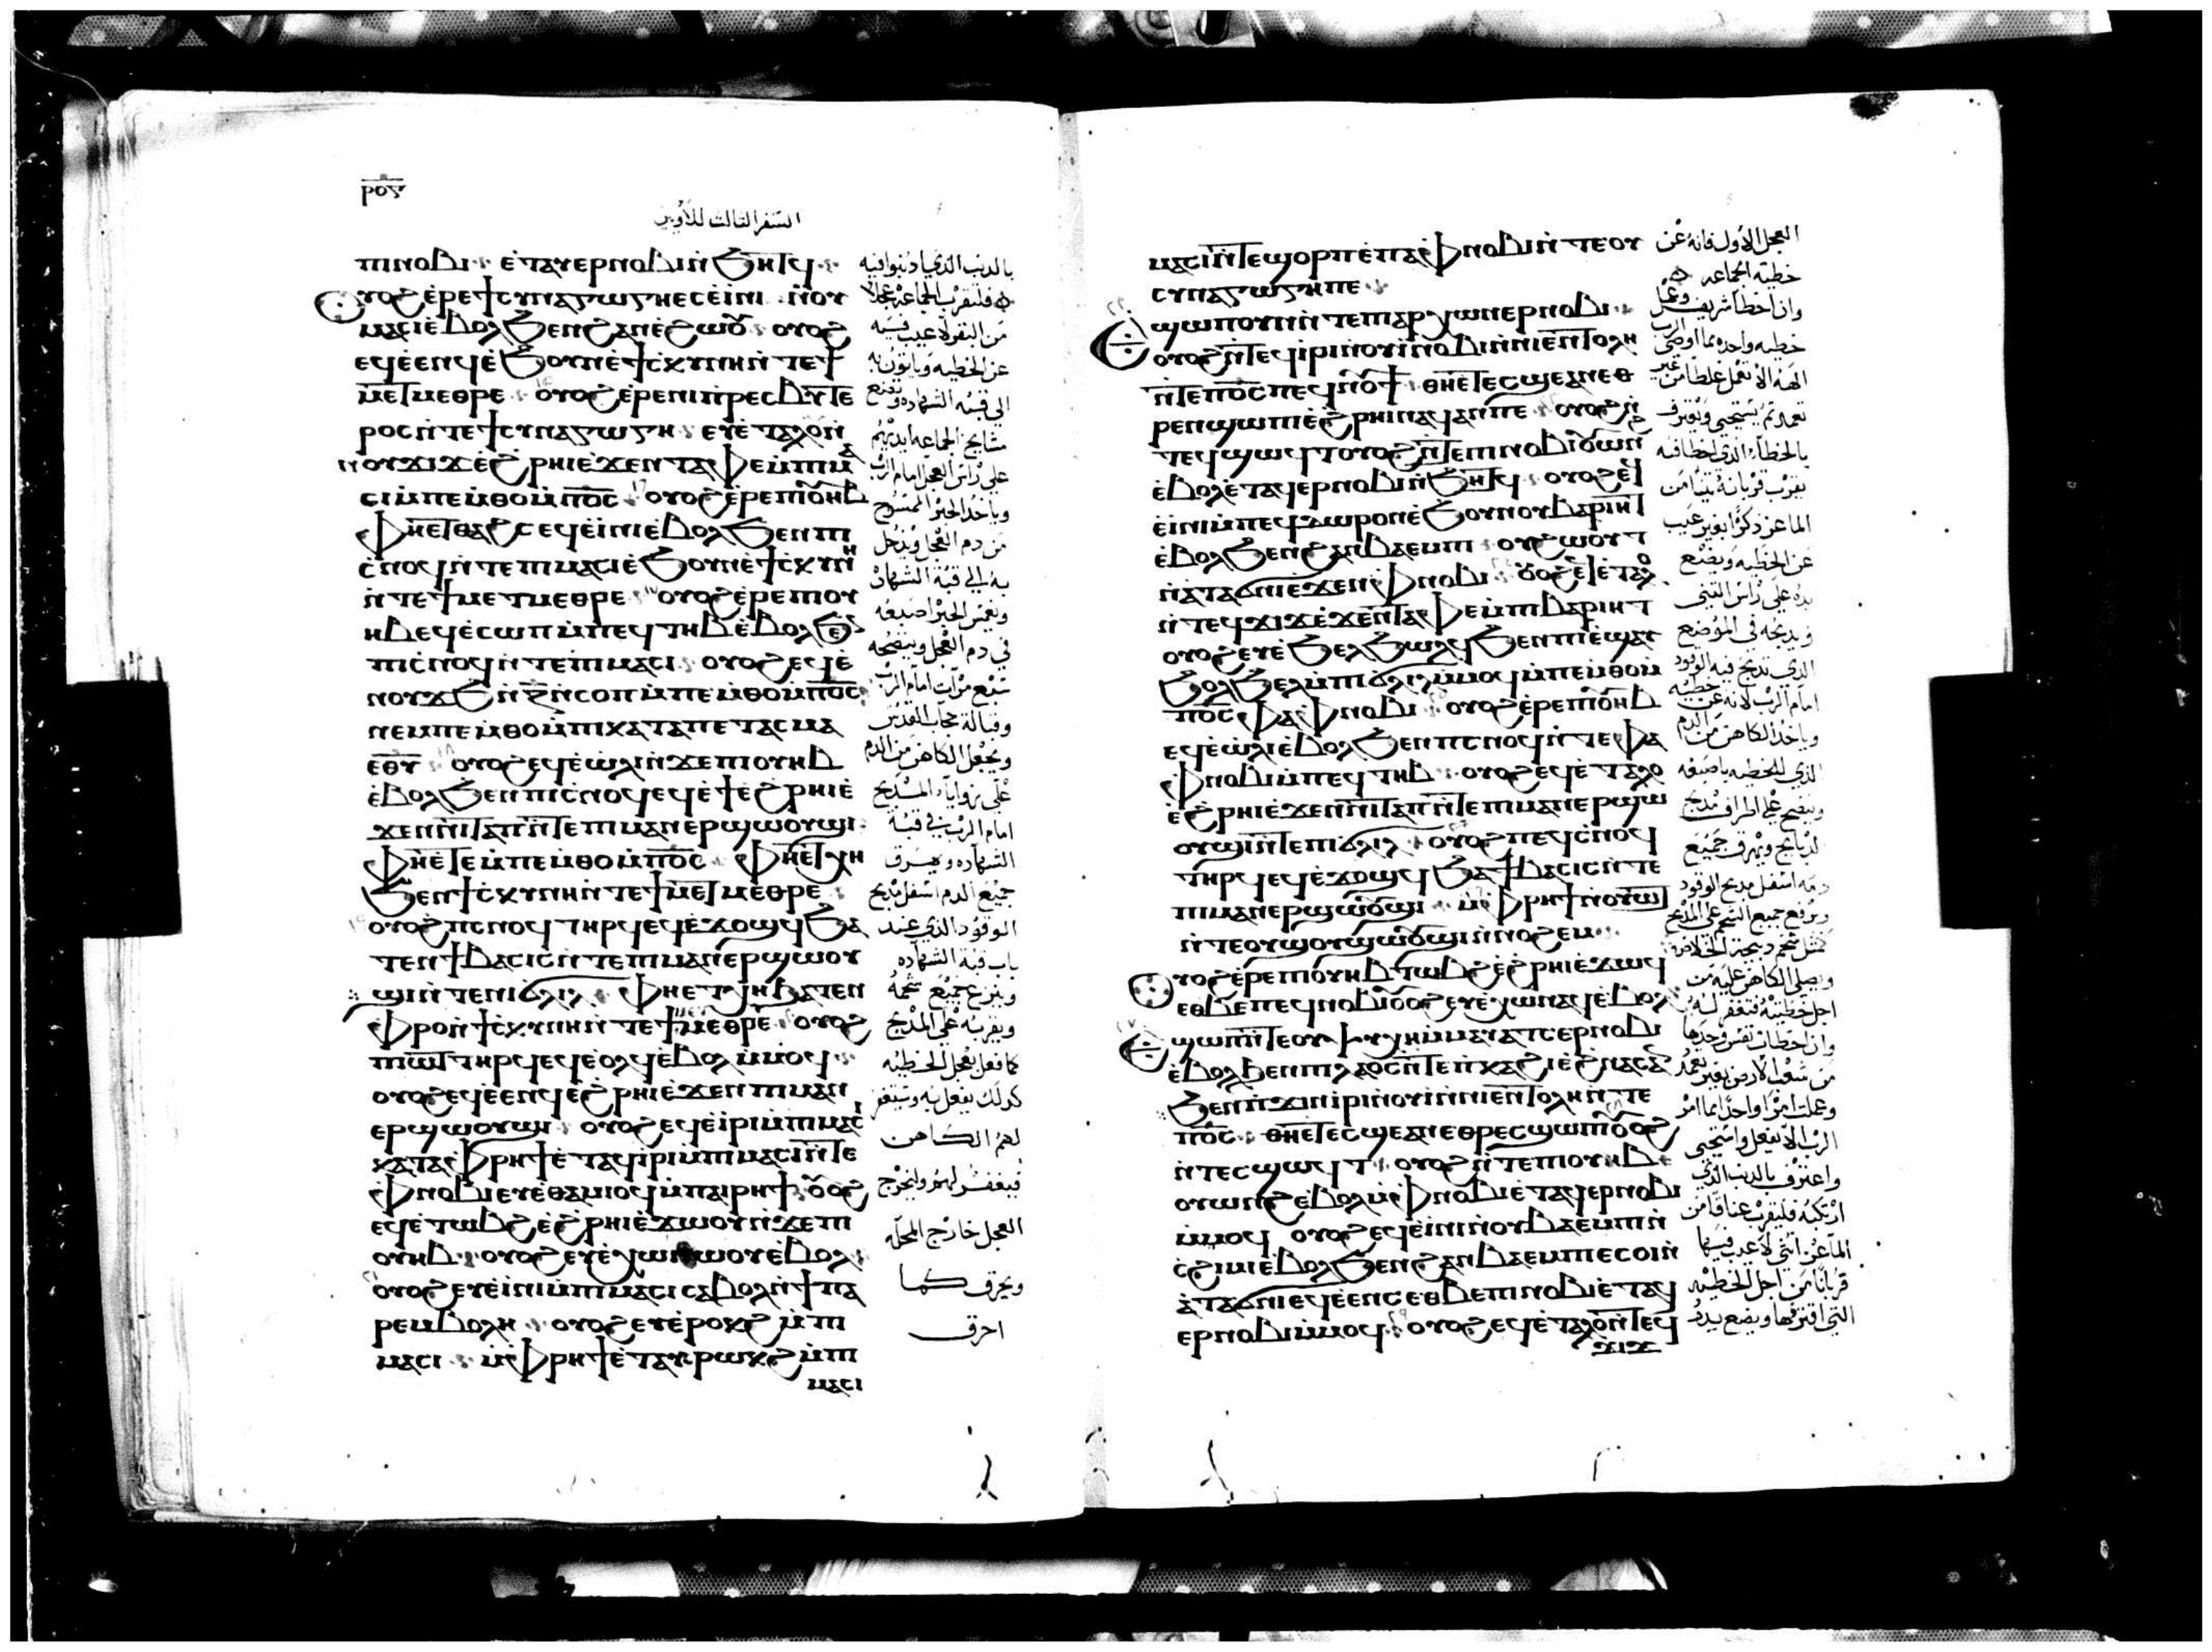 ⲣⲟⲋ
السفر التالت للاويين
ⲡⲓⲛⲟⲃⲓ ⲉ̀ⲧⲁⲩⲉⲣⲛⲟⲃⲓ ⲛ̀ϧⲏⲧϥ
ⲟⲩⲟϩ ⲉ̀ⲣⲉϯⲥⲩⲛⲁⲅⲱⲅⲏ ⲉⲥⲉ̀ⲓⲛⲓ ⲛ̀ⲟⲩ
ⲙⲁⲥⲓ ⲉ̀ⲃⲟⲗϧⲉⲛ ϩⲁⲛⲉ̀ϩⲱⲟⲩ ⲟⲩⲟϩ
ⲉϥⲉ̀ⲉⲛϥ ⲉ̀ϧⲟⲩⲛ ⲉ̀ϯⲥⲕⲩⲛⲏ ⲛ̀ⲧⲉϯ
ⲙⲉⲧⲙⲉⲑⲣⲉ ⲟⲩⲟϩ ⲉ̀ⲣⲉⲛⲓⲡⲣⲉⲥⲃⲩⲧⲉ
ⲣⲟⲥ ⲛ̀ⲧⲉϯⲥⲩⲛⲁⲅⲱⲅⲏ ⲉⲩⲉ̀ⲧⲁⲗⲟ ⲛ̀
ⲛⲟⲩϫⲓϫ ⲉ̀ϩⲣⲏⲓ ⲉ̀ϫⲉⲛ ⲧⲁⲫⲉ ⲙ̀ⲡⲓⲙⲁ
ⲥⲓ ⲙ̀ⲡⲉⲙⲑⲟ ⲙ̀ⲡⲟ̅ⲥ̅ ⲟⲩⲟϩ ⲉ̀ⲣⲉⲡⲓⲟⲩⲏⲃ
ⲫⲏⲉⲧⲑⲁϩⲥ ⲉϥⲉ̀ⲓⲛⲓ ⲉ̀ⲃⲟⲗϧⲉⲛ ⲡⲓ
ⲥ̀ⲛⲟϥ ⲛ̀ⲧⲉⲡⲓⲙⲁⲥⲓ ⲉ̀ϧⲟⲩⲛ ⲉ̀ϯⲥⲕⲩⲛⲏ
ⲛ̀ⲧⲉϯⲙⲉⲧⲙⲉⲑⲣⲉ ⲟⲩⲟϩ ⲉ̀ⲣⲉⲡⲓⲟⲩ
ⲏⲃ ⲉϥⲉ̀ⲥⲱⲡ ⲙ̀ⲡⲉϥⲧⲏⲃ ⲉ̀ⲃⲟⲗϧⲉⲛ
ⲡⲓⲥ̀ⲛⲟϥ ⲛ̀ⲧⲉⲡⲓⲙⲁⲥⲓ ⲟⲩⲟϩ ⲉϥⲉ̀
ⲛⲟⲩϫϧ ⲛ̀ⲍ̅ ⲛ̀ⲥⲟⲡ ⲙ̀ⲡⲉⲙⲑⲟ ⲙ̀ⲡⲟ̅ⲥ̅
ⲛⲉⲙⲡⲉⲙⲑⲟ ⲙ̀ⲡⲓⲕⲁⲧⲁⲡⲉⲧⲁⲥⲙⲁ
ⲉⲑⲩ ⲟⲩⲟϩ ⲉϥⲉ̀ⲱⲗⲓ ⲛ̀ϫⲉⲡⲓⲟⲩⲏⲃ
ⲉ̀ⲃⲟⲗϧⲉⲛ ⲡⲓⲥ̀ⲛⲟϥ ⲉϥⲉ̀ϯ ⲉ̀ϩⲣⲏⲓ ⲉ̀
ϫⲉⲛⲛⲓⲧⲁⲡ ⲛ̀ⲧⲉⲡⲓⲙⲁⲛⲉⲣϣⲱⲟⲩϣⲓ
ⲫⲏⲉⲧⲉⲙ̀ⲡⲉⲙⲑⲟ ⲙ̀ⲡⲟ̅ⲥ̅ ⲫⲏⲉⲧⲭⲏ
ϧⲉⲛ ϯⲥⲕⲩⲛⲏ ⲛ̀ⲧⲉϯⲙⲉⲧⲙⲉⲑⲣⲉ
ⲟⲩⲟϩ ⲡⲥⲛⲟϥ ⲧⲏⲣϥ ⲉϥⲉ̀ϫⲟϣϥ ϧⲁ
ⲧⲉⲛ ϯⲃⲁⲥⲓⲥ ⲛ̀ⲧⲉⲡⲓⲙⲁⲛⲉⲣϣⲱⲟⲩ
ϣⲓ ⲛ̀ⲧⲉⲛⲓϭⲗⲓⲗ ⲫⲏⲉⲧⲭⲏ ϧⲁⲧⲉⲛ
ⲫⲣⲟ ⲛ̀ϯⲥⲕⲩⲛⲏ ⲛ̀ⲧⲉϯⲙⲉⲧⲙⲉⲑⲣⲉ ⲟⲩⲟϩ
ⲡⲓⲱⲧ ⲧⲏⲣϥ ⲉϥⲉ̀ⲟⲗϥ ⲉ̀ⲃⲟⲗ ⲙ̀ⲙⲟϥ
ⲟⲩⲟϩ ⲉϥⲉ̀ⲉⲛϥ ⲉ̀ϩⲣⲏⲓ ⲉ̀ϫⲉⲛ ⲡⲓⲙⲁⲛ
ⲉⲣϣⲱⲟⲩϣⲓ ⲟⲩⲟϩ ⲉϥⲉ̀ⲓⲣⲓ ⲙ̀ⲡⲓⲙⲁⲥⲓ
ⲕⲁⲧⲁⲫⲣⲏϯ ⲉ̀ⲧⲁϥⲓⲣⲓ ⲙ̀ⲡⲓⲙⲁⲥⲓ ⲛ̀ⲧⲉ
ⲫⲛⲟⲃⲓ ⲉⲩⲉ̀ⲑⲁⲙⲓⲟϥ ⲙ̀ⲡⲁⲓⲣⲏϯ ⲟⲩⲟϩ
ⲉϥⲉ̀ⲧⲱⲃϩ ⲉ̀ϩⲣⲏⲓ ⲉ̀ϫⲱⲟⲩ ⲛ̀ϫⲉⲡⲓ
ⲟⲩⲏⲃ ⲟⲩⲟϩ ⲉⲩⲉ̀ⲭⲱ ⲛⲱⲟⲩ ⲉ̀ⲃⲟⲗ
ⲟⲩⲟϩ ⲉⲩⲉ̀ⲓⲛⲓ ⲙ̀ⲡⲓⲙⲁⲥⲓ ⲥⲁⲃⲟⲗ ⲛ̀ϯⲡⲁ
ⲣⲉⲙⲃⲟⲗⲏ ⲟⲩⲟϩ ⲉⲩⲉ̀ⲣⲟⲕϩ ⲙ̀ⲡⲓ
ⲙⲁⲥⲓ ⲙ̀ⲫⲣⲏϯ ⲉ̀ⲧⲁⲩⲣⲱⲕϩ ⲙ̀ⲡⲓ
ⲙⲁⲥⲓ
بالدنب الذي ادنبوا فيه
فلتقرب الجماعة عجلا
من البقر لا عيب فيه
عن الخطيه وياتون به
الى قبة الشهاده وتضع
مشايخ الجماعه ايديهم
على راس العجل امام الرب
وياخد الحبر الممسوح
من دم العجل ويدخل
به الى قبة الشهاده
ويغمس الحبر اصبعه
في دم العجل وينضحه
سبع مرات امام الرب
وقبالة حجاب القدس
ويجعل الكاهن من الدم
على زوايا المدبح
امام الرب في قبة
الشهاده ويهرق
جميع الدم اسفل مدبح
الوقود الذي عند
باب قبة الشهاده
وينزع جميع شحمه
ويقربه على المدبح
كما فعل بعجل الخطيه
كدلك يفعل به ويستغفر
لهم الكاهن
فيغفر لهم ويخرج
العجل خارج المحله
ويحرق كما
احرق
ⲙⲁⲥⲓ ⲛ̀ⲧⲉϣⲟⲣⲡ ⲉ̀ⲡⲁⲫⲛⲟⲃⲓ ⲛ̀ⲧⲉⲟⲩ
ⲥⲩⲛⲁⲅⲱⲅⲏ ⲡⲉ
ⲉ̀ϣⲱⲡ ⲟⲩⲛ ⲛ̀ⲧⲉⲡⲓⲁⲣⲭⲱⲛ ⲉⲣⲛⲟⲃⲓ
ⲟⲩⲟϩ ⲛ̀ⲧⲉϥⲓⲣⲓ ⲛ̀ⲟⲩⲓ ⲛ̀ⲟⲃⲓ ⲛ̀ⲛⲓⲉⲛⲧⲟⲗⲏ
ⲛ̀ⲧⲉⲡⲟ̅ⲥ̅ ⲡⲉϥⲛⲟⲩϯ ⲑⲏⲉⲧⲉⲥϣⲉ ⲁⲛ ⲉⲑ
ⲣⲉⲛϣⲱⲡⲓ
ⲧⲉϥϣⲱϥⲧ ⲟⲩⲟϩ ⲛ̀ⲧⲉⲡⲓⲛⲟⲃⲓ ⲟⲩⲱⲛϩ
ⲉ̀ⲃⲟⲗ ⲉ̀ⲧⲁϥⲉⲣⲛⲟⲃⲓ ⲛ̀ϧⲏⲧϥ ⲟⲩⲟϩ ⲉϥ
ⲉ̀ⲓⲛⲓ ⲙ̀ⲡⲉϥⲇⲱⲣⲟⲛ ⲉ̀ϧⲟⲩⲛ ⲟⲩⲃⲁⲣⲏⲓⲧ
ⲉ̀ⲃⲟⲗϧⲉⲛ ϩⲁⲛⲃⲁⲉⲙⲡⲓ ⲟⲩϩⲱⲟⲩⲧ
ⲛ̀ⲁⲧⲁϭⲛⲓ ⲉ̀ϫⲉⲛ ⲫⲛⲟⲃⲓ ⲟⲩⲟϩ ⲉϥⲉ̀ⲧⲁⲗⲟ
ⲛ̀ⲧⲉϥϫⲓϫ ⲉ̀ϫⲉⲛ ⲧⲁⲫⲉ ⲙ̀ⲡⲓⲃⲁⲣⲏⲓⲧ
ⲟⲩⲟϩ ⲉⲩⲉ̀ϧⲉⲗϧⲱⲗϥ ϧⲉⲛ ⲡⲓⲙⲁ ⲉ̀ϣⲁⲩ
ϧⲟⲗϧⲉⲗ ⲙ̀ⲡⲓϭⲗⲓⲗ ⲙ̀ⲙⲟϥ ⲙ̀ⲡⲉⲙⲑⲟ ⲙ̀
ⲡⲟ̅ⲥ̅ ⲫⲁⲫⲛⲟⲃⲓ ⲟⲩⲟϩ ⲉ̀ⲣⲉⲡⲓⲟⲩⲏⲃ
ⲉϥⲉ̀ⲱⲗⲓ ⲉ̀ⲃⲟⲗϧⲉⲛ ⲡⲥⲛⲟϥ ⲛ̀ⲧⲉⲫⲁ
ⲫⲛⲟⲃⲓ ⲙ̀ⲡⲉϥⲧⲏⲃ ⲟⲩⲟϩ ⲉϥⲉ̀ⲧⲁⲗⲟ
ⲉ̀ϩⲣⲏⲓ ⲉ̀ϫⲉⲛ ⲛⲓⲧⲁⲡ ⲛ̀ⲧⲉⲡⲓⲙⲁⲛⲉⲣϣⲱ
ⲟⲩϣⲓ ⲛ̀ⲧⲉⲡⲓϭⲗⲓⲗ ⲟⲩⲟϩ ⲡⲉϥⲥ̀ⲛⲟϥ
ⲧⲏⲣϥ ⲉϥⲉ̀ϫⲟϣϥ ϧⲁ ϯⲃⲁⲥⲓⲥ ⲛ̀ⲧⲉ
ⲡⲓⲙⲁⲛⲉⲣϣⲱⲟⲩϣⲓ ⲙ̀ⲫⲣⲏϯ
ⲛ̀ⲧⲉⲟⲩϣⲟⲩϣⲱⲟⲩϣⲓ ⲛ̀ⲛⲟϩⲉⲙ
ⲟⲩⲟϩ ⲉ̀ⲣⲉⲡⲓⲟⲩⲏⲃ ⲧⲱⲃϩ ⲉ̀ϩⲣⲏⲓ ⲉ̀ϫⲱϥ
ⲉⲑⲃⲉ ⲡⲉϥⲛⲟⲃⲓ ⲟⲩⲟϩ ⲉⲩⲉ̀ⲭⲱ ⲛⲁϥ ⲉ̀ⲃⲟⲗ
ⲉ̀ϣⲱⲡ ⲛ̀ⲧⲉⲟⲩⲯⲩⲭⲏ ⲙ̀ⲙⲁⲩⲁⲧⲥ ⲉⲣⲛⲟⲃⲓ
ⲉ̀ⲃⲟⲗϧⲉⲛ ⲡⲓⲗⲁⲟⲥ ⲛ̀ⲧⲉⲡⲕⲁϩⲓ
ϧⲉⲛ ⲡϫⲓⲛⲓ̀ⲣⲓ ⲛ̀ⲟⲩⲓ̀ ⲛ̀ⲛⲓⲉⲛⲧⲟⲗⲏ ⲛ̀ⲧⲉ
ⲡⲟ̅ⲥ̅ ⲑⲏⲉⲧⲉⲥϣⲉ ⲁⲛ ⲉⲑⲣⲉⲥϣⲱⲡⲓ ⲟⲩⲟϩ
ⲛ̀ⲧⲉⲥϣⲱϥⲧ ⲟⲩⲟϩ ⲛ̀ⲧⲉⲡⲓⲟⲩⲏⲃ
ⲟⲩⲱⲛϩ ⲉ̀ⲃⲟⲗ ⲙ̀ⲫⲛⲟⲃⲓ ⲉ̀ⲧⲁϥⲉⲣⲛⲟⲃⲓ
ⲙ̀ⲙⲟϥ ⲟⲩⲟϩ ⲉϥⲉ̀ⲓⲛⲓ ⲛ̀ⲟⲩⲃⲁⲉⲙⲡⲓ ⲛ̀
ⲥ̀ϩⲓⲙⲓ ⲉ̀ⲃⲟⲗϧⲉⲛ ϩⲁⲛⲃⲁⲉⲙⲡⲉ ⲥⲟⲓ ⲛ̀
ⲁ̀ⲧⲁϭⲛⲓ ⲉϥⲉ̀ⲉⲛⲥ ⲉⲑⲃⲉ ⲡⲓⲛⲟⲃⲓ ⲉ̀ⲧⲁϥ
ⲉⲣⲛⲟⲃⲓ ⲙ̀ⲙⲟϥ ⲟⲩⲟϩ ⲉϥⲉ̀ⲧⲁⲗⲟ ⲛ̀ⲧⲉϥ
ϫⲓϫ
العجل الاول فانه عن
خطية الجماعه
وان اخطا شريف وعمل
خطيه واحده مما اوصى الرب
الهه الا تعمل غلطا من غير
تعمد ثم يستحيي ويعترف
بالخطا الذي اخطا فيه
يقرب قربانه تيسا من
الماعز دكرا بغير عيب
عن الخطيه ويضع
يده على راس التيس
ويدبحه في الموضع
الذي تدبح فيه الوقود
امام الرب لانه عن خطيه
وياخد الكاهن من الدم
الذي للخطيه باصبعه
وينضح على اطراف مدبح
الدبايح ويهرق جميع
دمه اسفل مدبح الوقود
ويرفع جميع الشحم على المدبح
كمثل شحم دبيحة الخلاص
ويصلي الكاهن عليه من
اجل خطيته فتغفر له
وان اخطات نفس وحدها
من شعب الارض بغير تعمد
وعملت امرا واحدا مما امر
الرب الا يفعل واستحيي
واعترف بالدنب الذي
ارتكبه فليقرب عناقا من
الماعز انثى لا عيب فيها
قربانا من اجل الخطيه
التي اقترفها ويضع يده